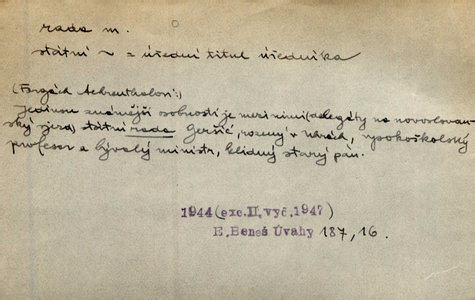 rada m.
státní ~ = úřední titul úředníka
(Forgách Aehrenthalovi:)
Jedinou známější osobností je mezi nimi (delegáty na novoslovan-
ský sjezd) státní rada Geršić, rozený v Uhrách, vysokoškolský
profesor a bývalý ministr, klidný starý pán.
1944 (exc.II.vyd.1947)
E.Beneš Úvahy 187,16.